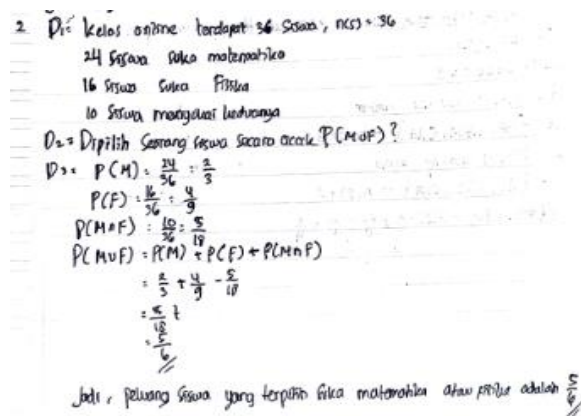 2 D1: Kelas online terdapat 36 siswa, n(s) = 36
24 siswa suka matematika
16 siswa suka Fisika
10 siswa menyukai keduanya
D2: Dipilih seorang siswa secara acak P(M∪F)?
D3: P(M) = 24/36 = 2/3
P(F) = 16/36 = 4/9
P(M∩F) = 10/36 = 5/18
P(M∪F) = P(M) + P(F) + P(M∩F)
= 2/3 + 4/9 - 5/18
= 5/6
Jadi, peluang siswa yang terpilih suka matematika atau fisika adalah 5/6